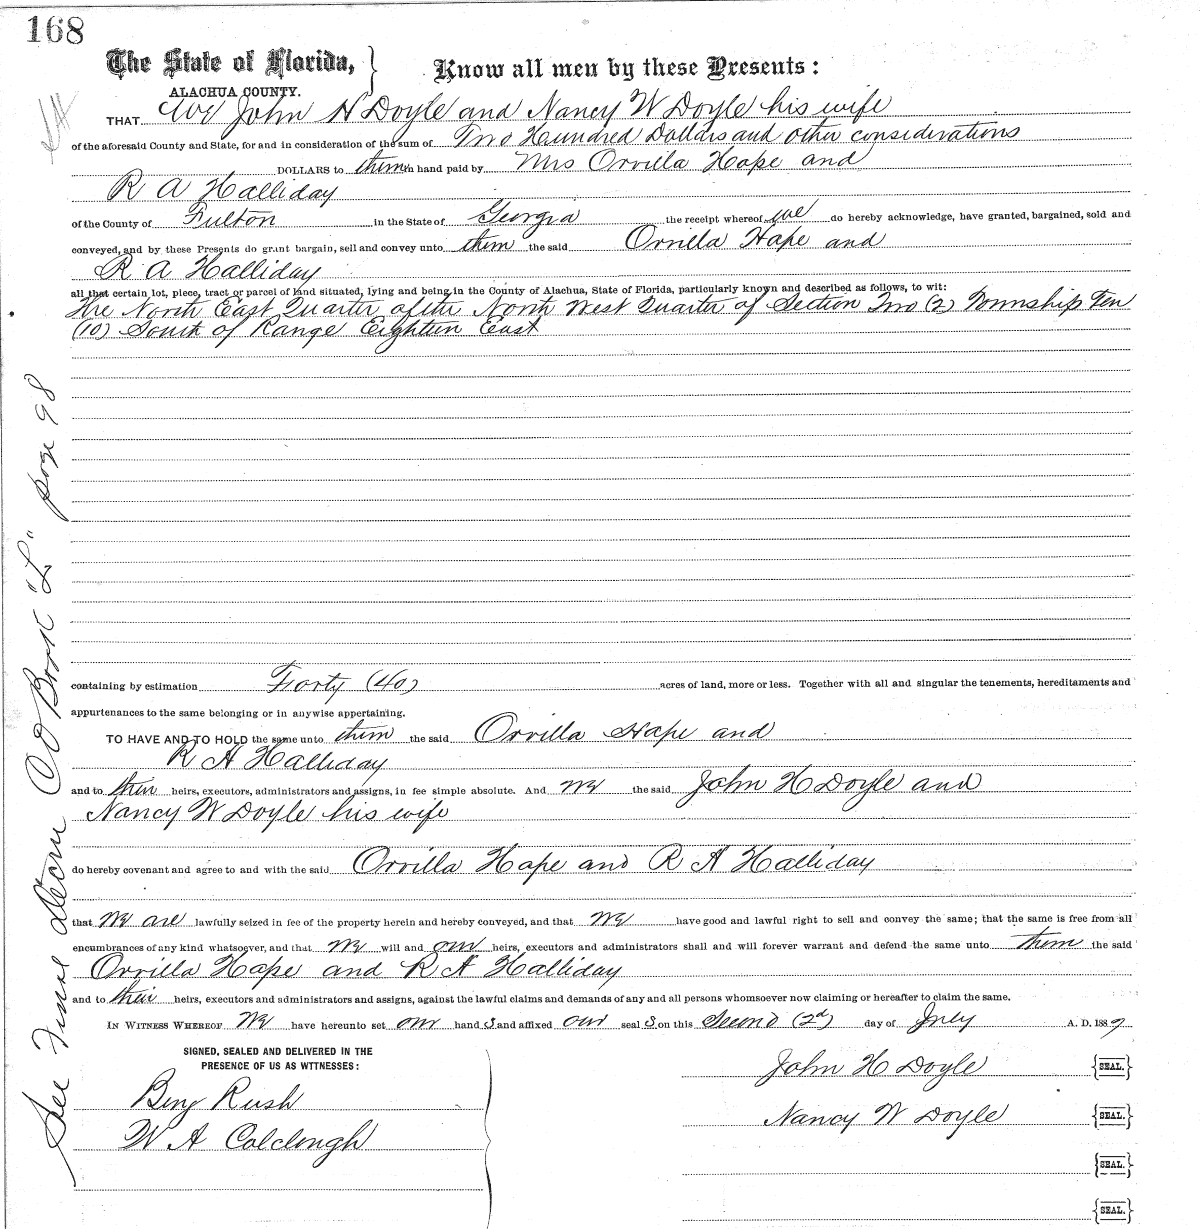 168
The State of Florida, } Know all men by these Presents:
ALACHUA COUNTY.
THAT We John H Doyle and Nancy W Doyle his wife
of the aforesaid County and State, for and in consideration of the sum of Two Hundred Dollars and other considerations
DOLLARS to them in hand paid by Mrs Orvilla Hape and
R A Halliday
of the County of Fulton in the State of Georgia the receipt whereof we do hereby acknowledge, have granted, bargained, sold and
conveyed, and by these Presents do grant bargain, sell and convey unto them the said Orvilla Hape and
R A Halliday
all that certain lot, piece, tract or parcel of land situated, lying and being in the County of Alachua, State of Florida, particularly known and described as follows, to wit:
The North East Quarter of the North West Quarter of Section Two (2) Township Ten
(10) South of Range Eighteen East
containing by estimation Forty (40) acres of land, more or less. Together with all and singular the tenements, hereditaments and
appurtenances to the same belonging or in anywise appertaining.
TO HAVE AND TO HOLD the same unto them the said Orvilla Hape and
R A Halliday
and to their heirs, executors, administrators and assigns, in fee simple absolute. And We the said John H Doyle and
Nancy W Doyle his wife
do hereby covenant and agree to and with the said Orvilla Hape and R A Halliday
that We are lawfully seized in fee of the property herein and hereby conveyed, and that We have good and lawful right to sell and convey the same; that the same is free from all
encumbrances of any kind whatsoever, and that We will and our heirs, executors and administrators shall and will forever warrant and defend the same unto them the said
Orvilla Hape and R A Halliday
and to their heirs, executors and administrators and assigns, against the lawful claims and demands of any and all persons whomsoever now claiming or hereafter to claim the same.
IN WITNESS WHEREOF We have hereunto set our hand s and affixed our seal s on this Second (2d) day of July A. D. 1889
SIGNED, SEALED AND DELIVERED IN THE
PRESENCE OF US AS WITNESSES:
Benj Rush
W A Colclough
John H Doyle {SEAL.}
Nancy W Doyle {SEAL.}
{SEAL.}
{SEAL.}
See Final Decree C O Book "L" page 98